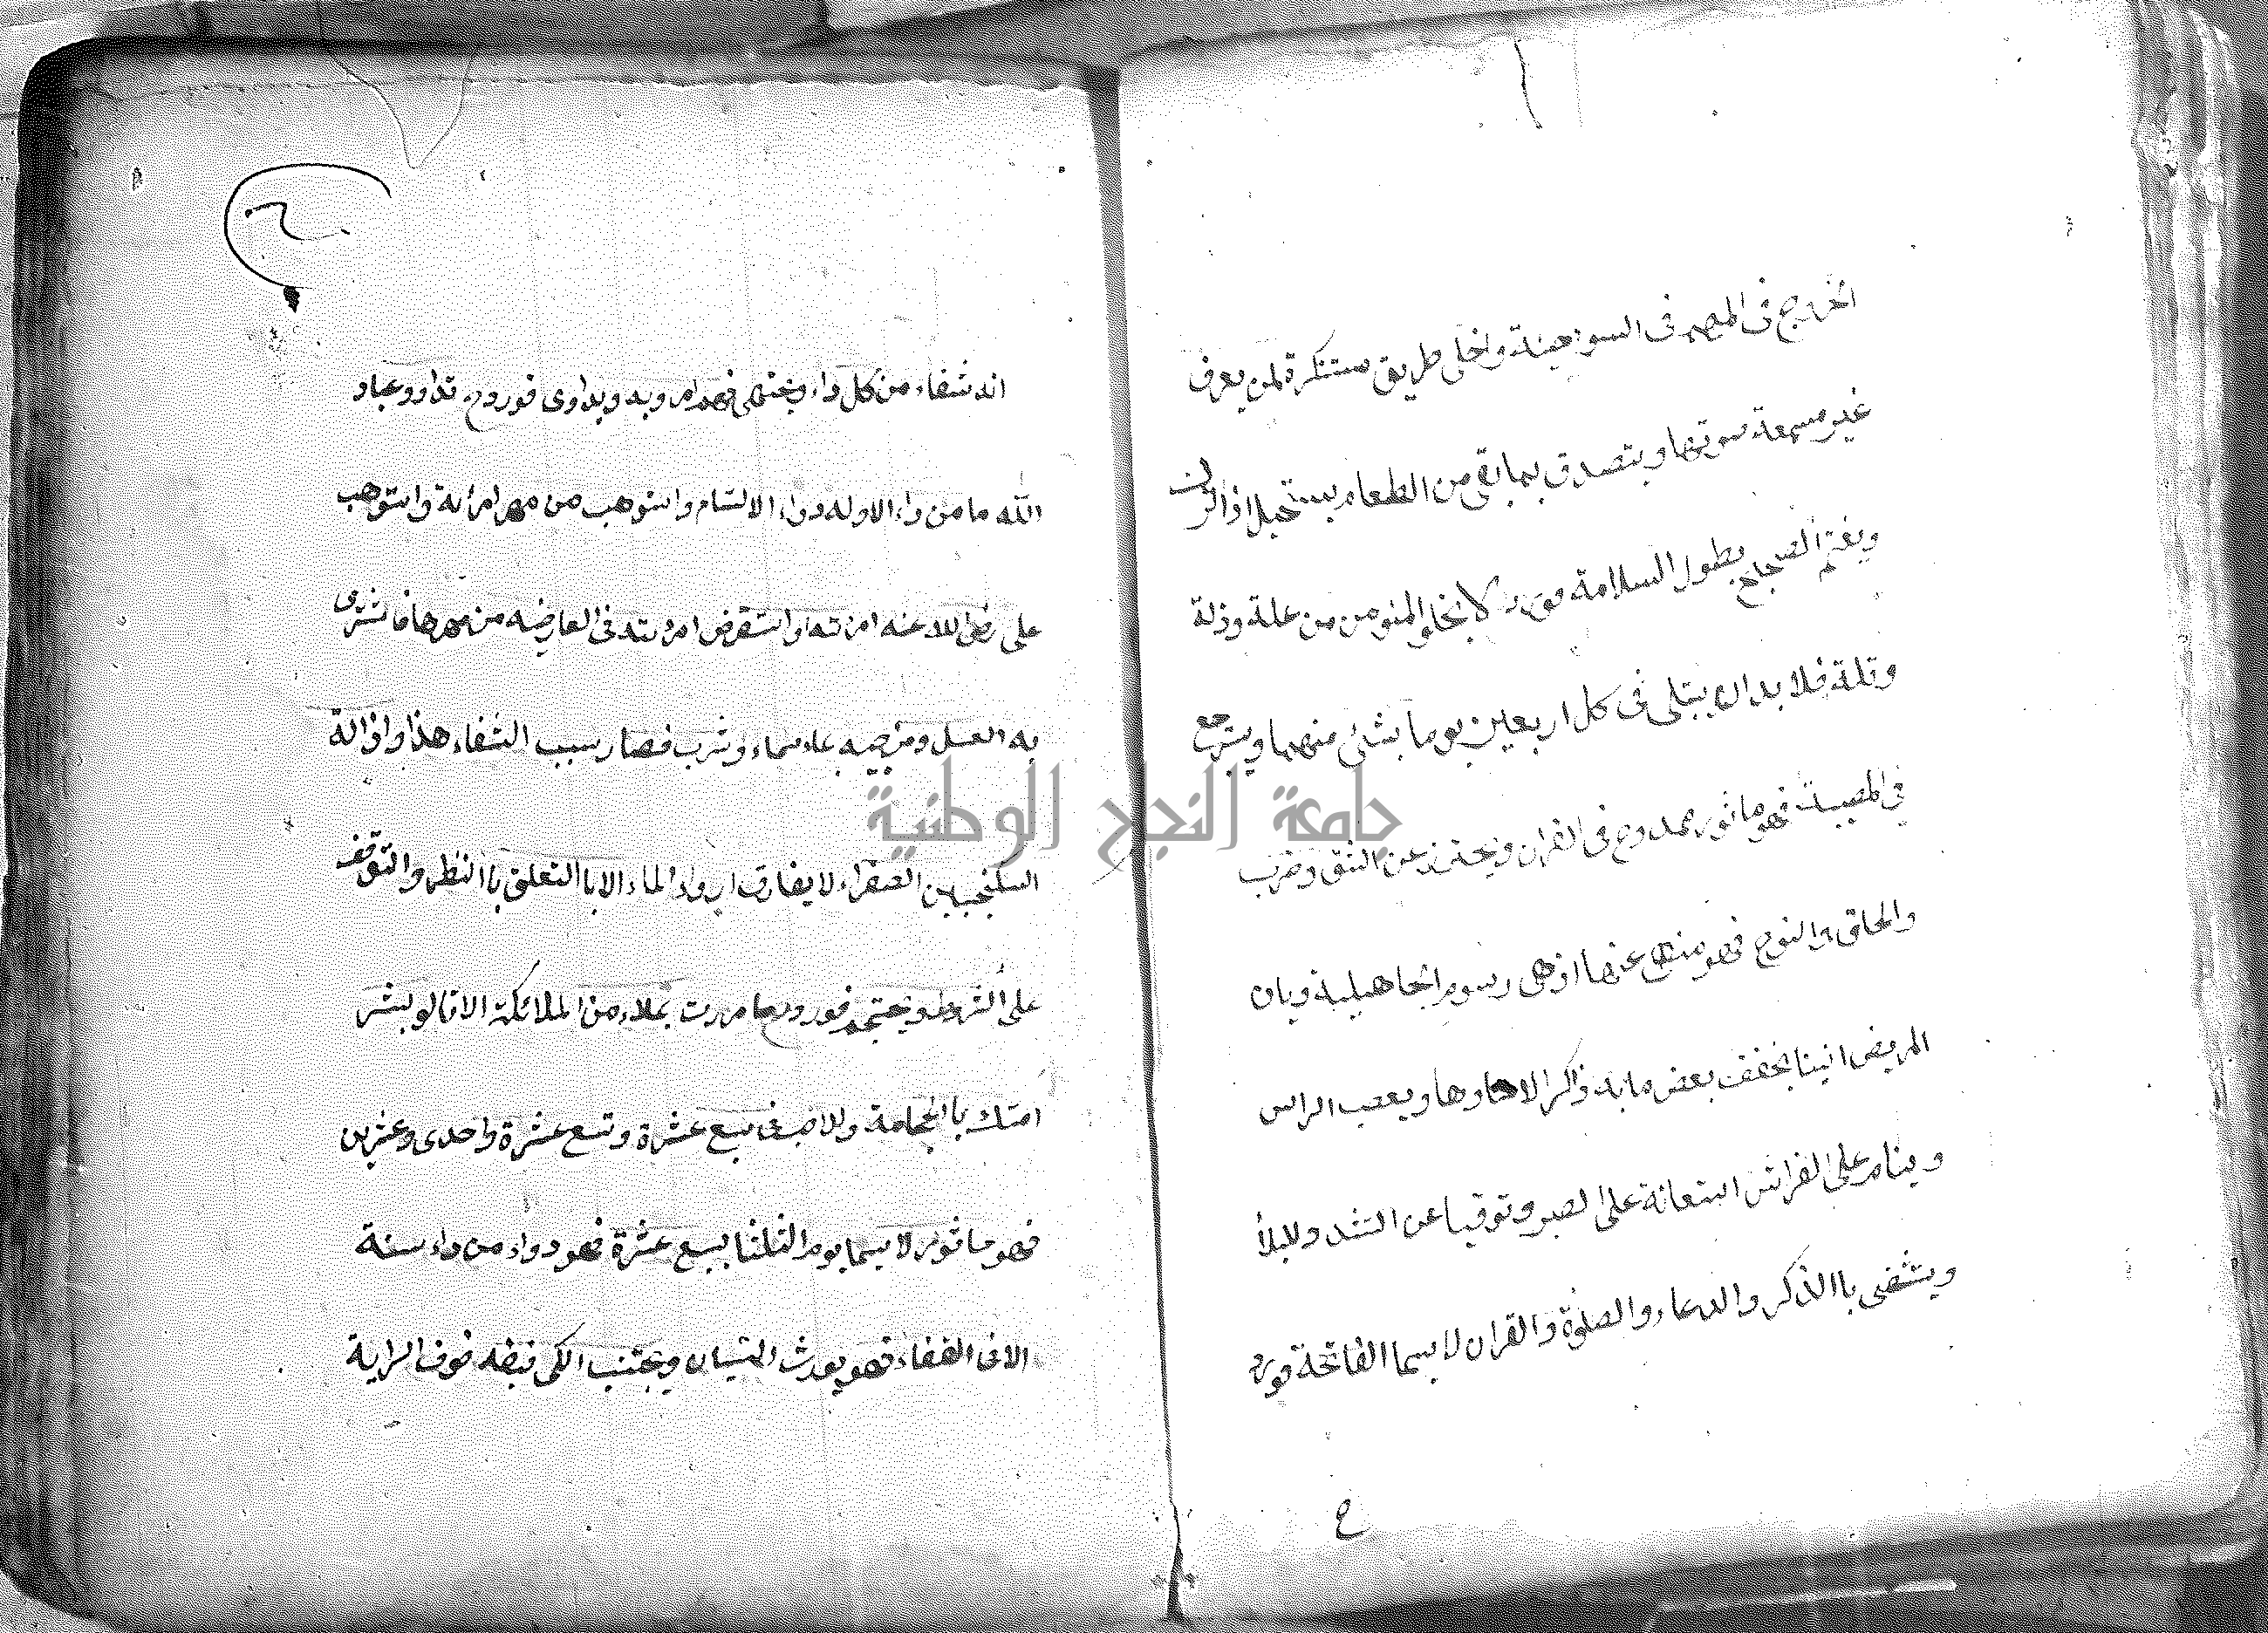 الخروج في في السو هينة واخلى طريق مستنكرة لمن يعرف
غير مسمعة سوتها ويتصدق بما بقى من الطعام
ويغتم الصحاح بطول السلامة فورد لا يخلو المنومن من علة وذلة
وقلة فلا بد ان يبتلى في كل اربعين يوما بشئ منهما ويسترجع
في المصيبة فهو ماثور ممدوح في القران ويحترز عن النتق وضرب
والحلق والنوح فهو منهى عنها اذ هى رسوم الجاهيلية ويان
المريض انينا يخفف بعض ما به ذاكرا لا ويعصب الراس
وينام على الفراش استعانة على الصبر وتوقيا عن
ويشفى باالذكر والدعاء والصلوة والقران لا سيما الفاتحة فورد
ع
انه شفاء من كل داء ويحتمى فهو امر وبه ويداوى فوروح تداوو عباد
الله ما من داء الا وله دواء الا السام واستوهب من مهر امراية واستوهب
على رضى الله عنه امراته واستقرض امرئته في العارضه من مهرها فاشترى
به العسل ومزجه بماء سماء وشرب فصار سبب الشفاء هذا واذالة
السكنجبين الصفراء لا يفارق ارواد الماء الا باالتعلق باالنظر والتوقف
على الشروط ويحتجم فورد ما مررت بملاء من الملائكة الا قالو بشر
امتك باالحجامة وللاحب في سبع عشرة وتسع عشرة واحدى وعشرين
فهو ماثور لا سيما يوم الثلثا لسبع عشرة فهو دواء من داء سنة
الا في القفاء فهو يورث النسيان ويجتنب الكى فبضه فوف الراية
جامعة النجاح الوطنية